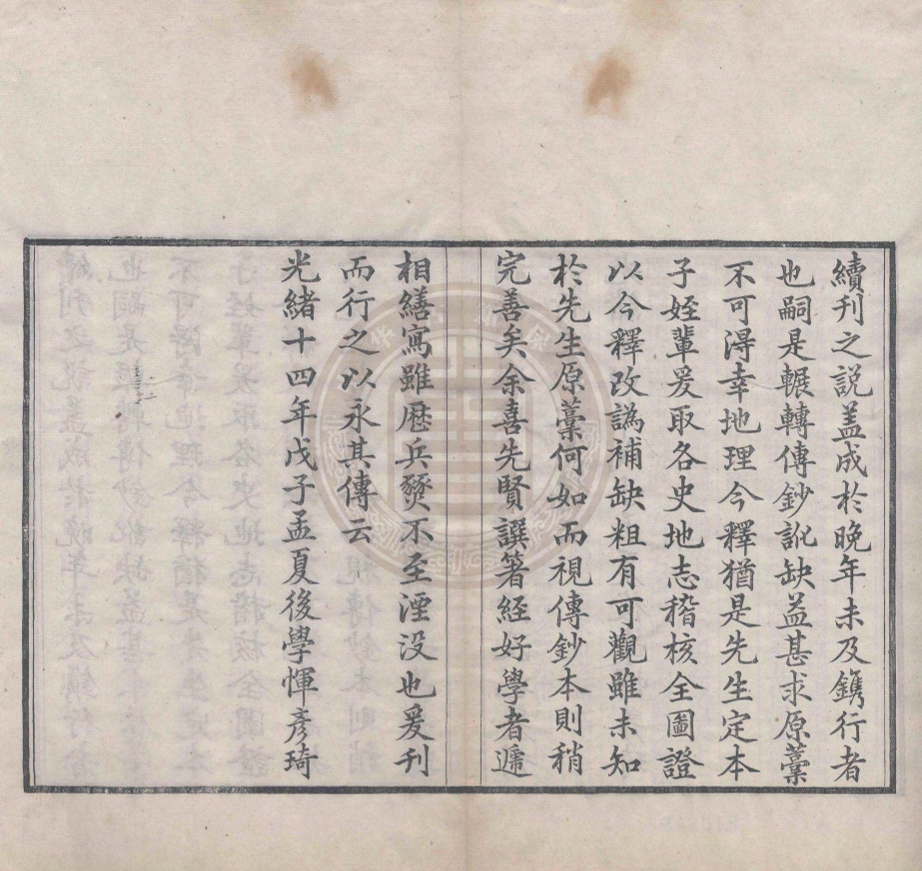 續刊之說盖成於晚年未及鐫行者
也嗣是輾轉傳鈔訛缺益甚求原藁
不可淂幸地理今釋猶是先生定本
子姪輩爰取各史地志稽核全圖證
以今釋改譌補缺粗有可觀雖未知
於先生原藁何如而視傳鈔本則稍
完善矣余喜先賢譔著經好學者遞
相繕寫雖歷兵燹不至湮没也爰刊
而行之以永其傳云
光緒十四年戊子孟夏後學惲彥琦